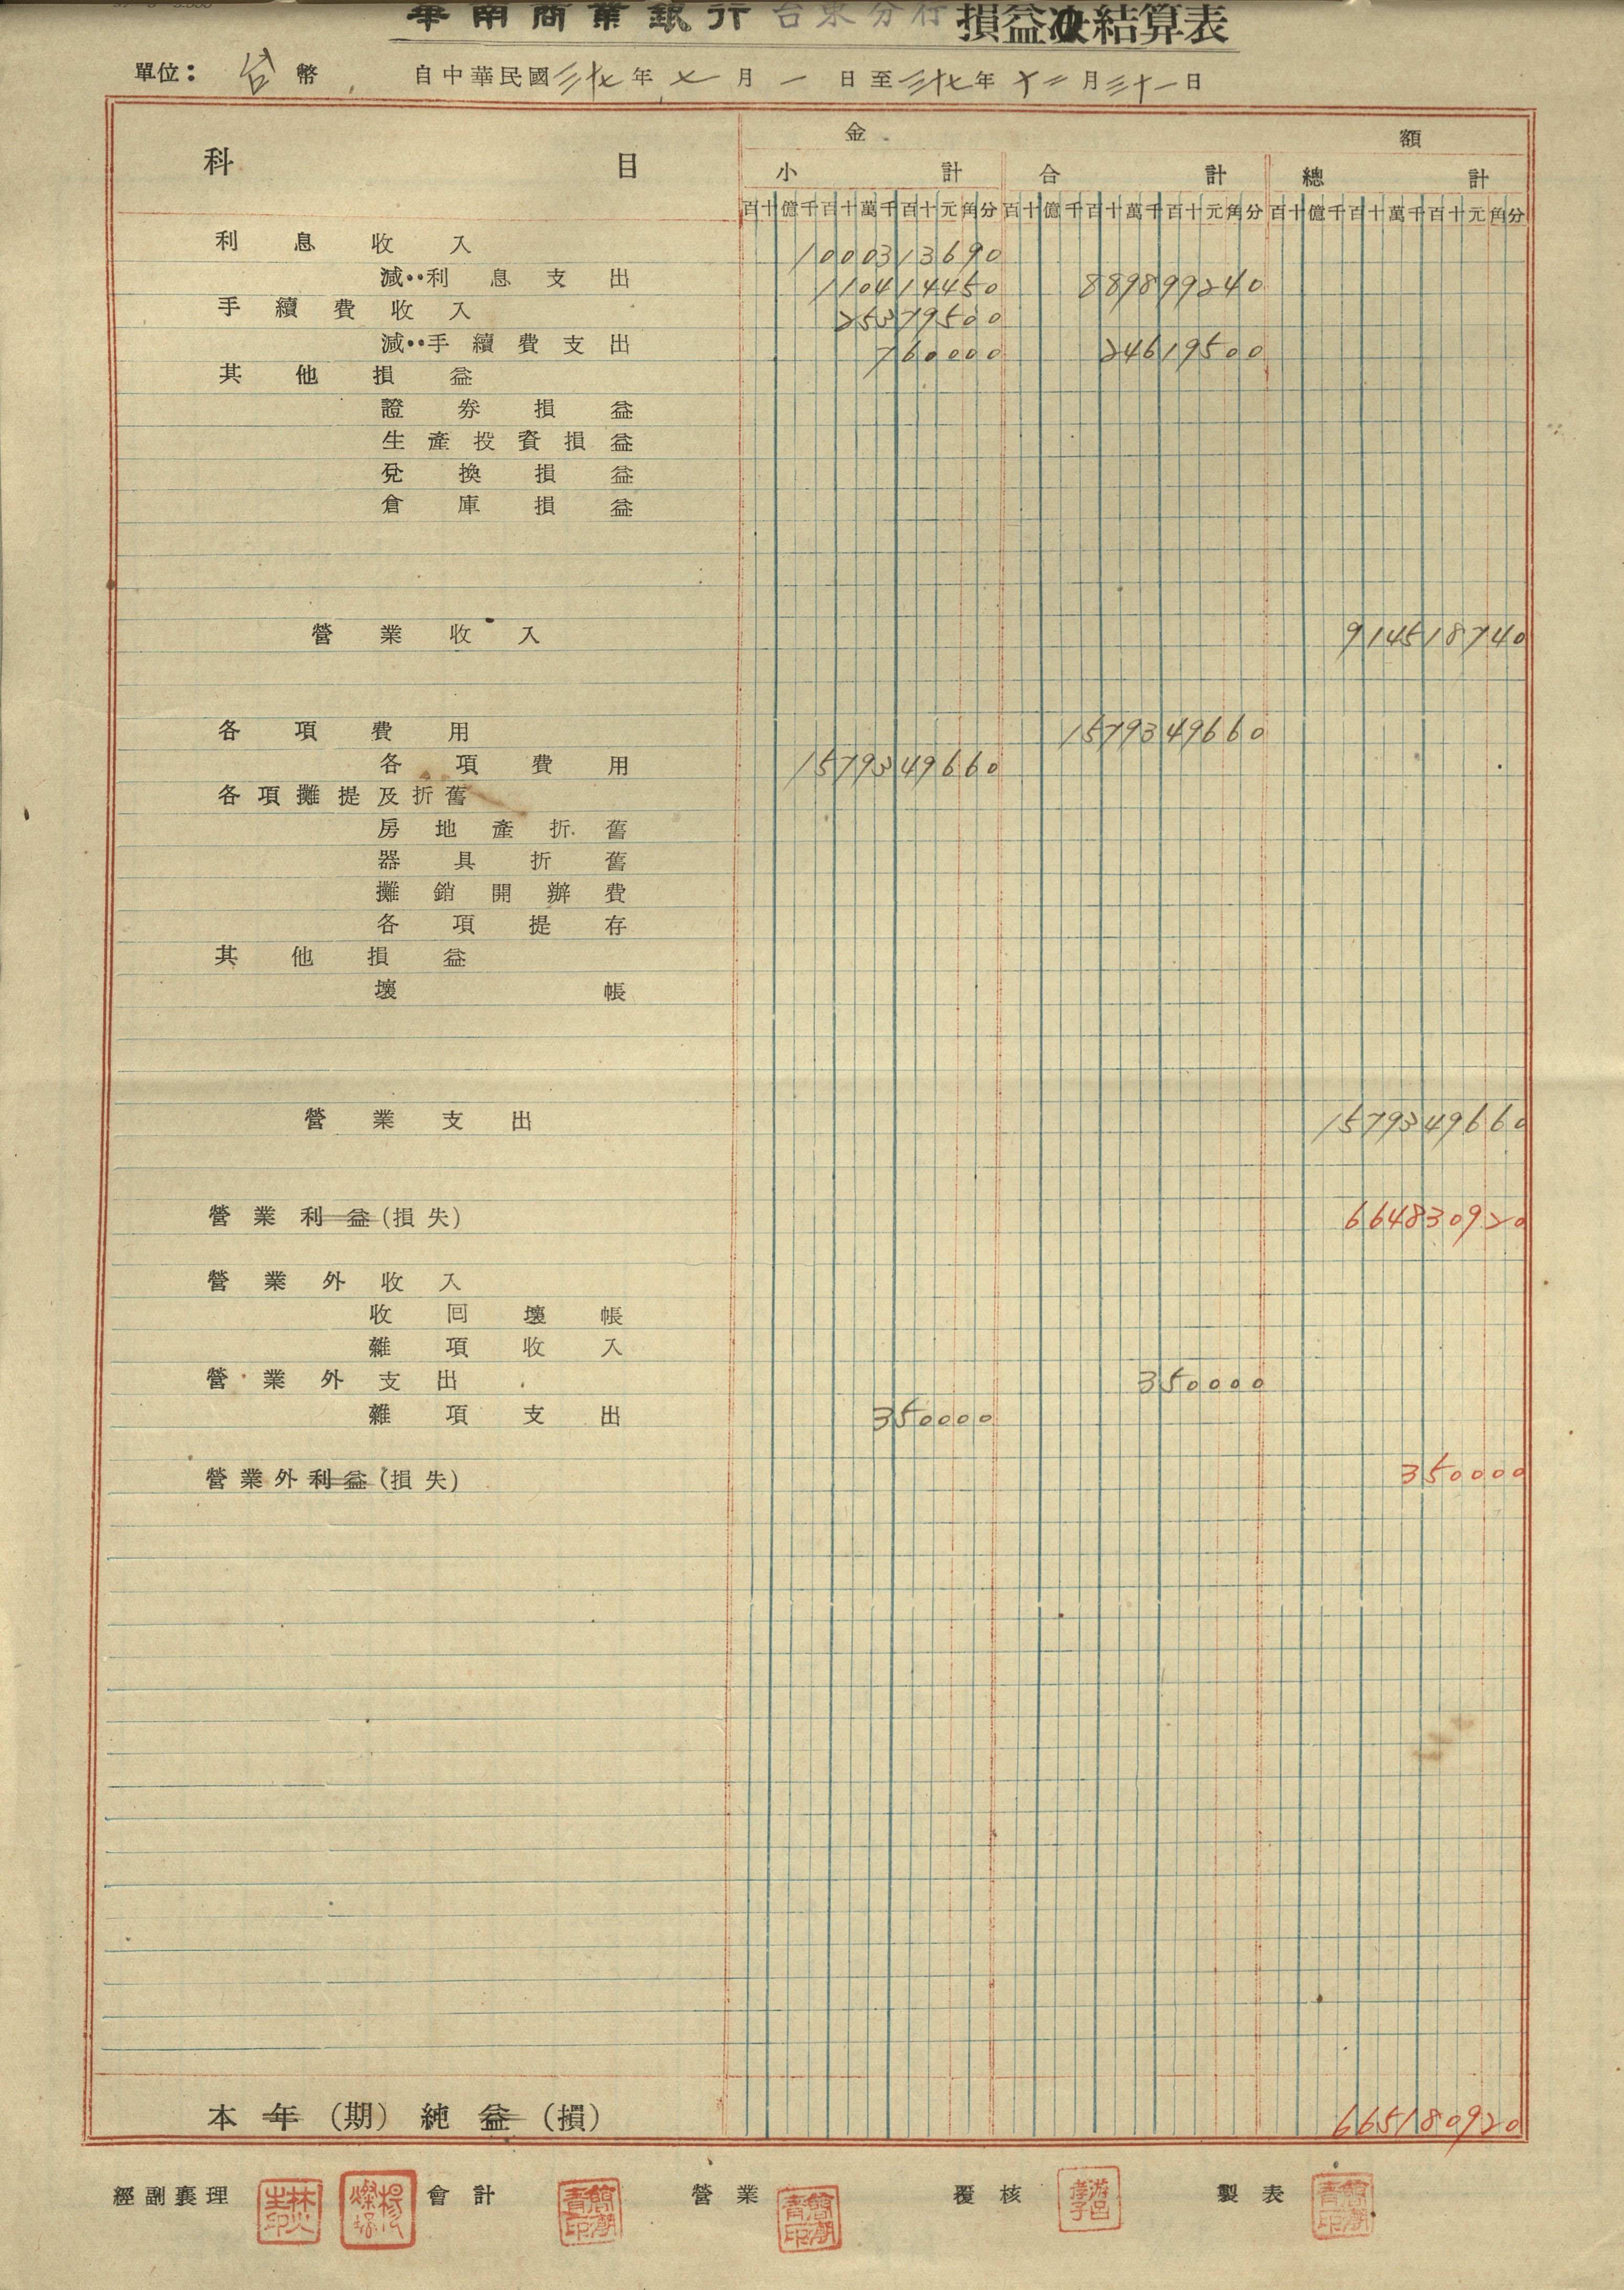 華南商業銀行台東分行損益決結算表
單位：台幣 自中華民國三十七年七月一日至三十七年十二月三十一日
科目 金額
小計 合計 總計
百十億千百十萬千百十元角分 百十億千百十萬千百十元角分 百十億千百十萬千百十元角分
利息收入 1000313690
減：利息支出 110414450 889899240
手續費收入 25379500
減：手續費支出 760000 24619500
其他損益
證券損益
生產投資損益
兌換損益
倉庫損益
營業收入 914518740
各項費用 1579349660
各項費用 1579349660
各項攤提及折舊
房地產折舊
器具折舊
攤銷開辦費
各項提存
其他損益
壞帳
營業支出 1579349660
營業利益(損失) 664830920
營業外收入
收回壞帳
雜項收入
營業外支出 350000
雜項支出 350000
營業外利益(損失) 350000
本年(期)純益(損) 665180920
經副襄理 會計 營業 覆核 製表